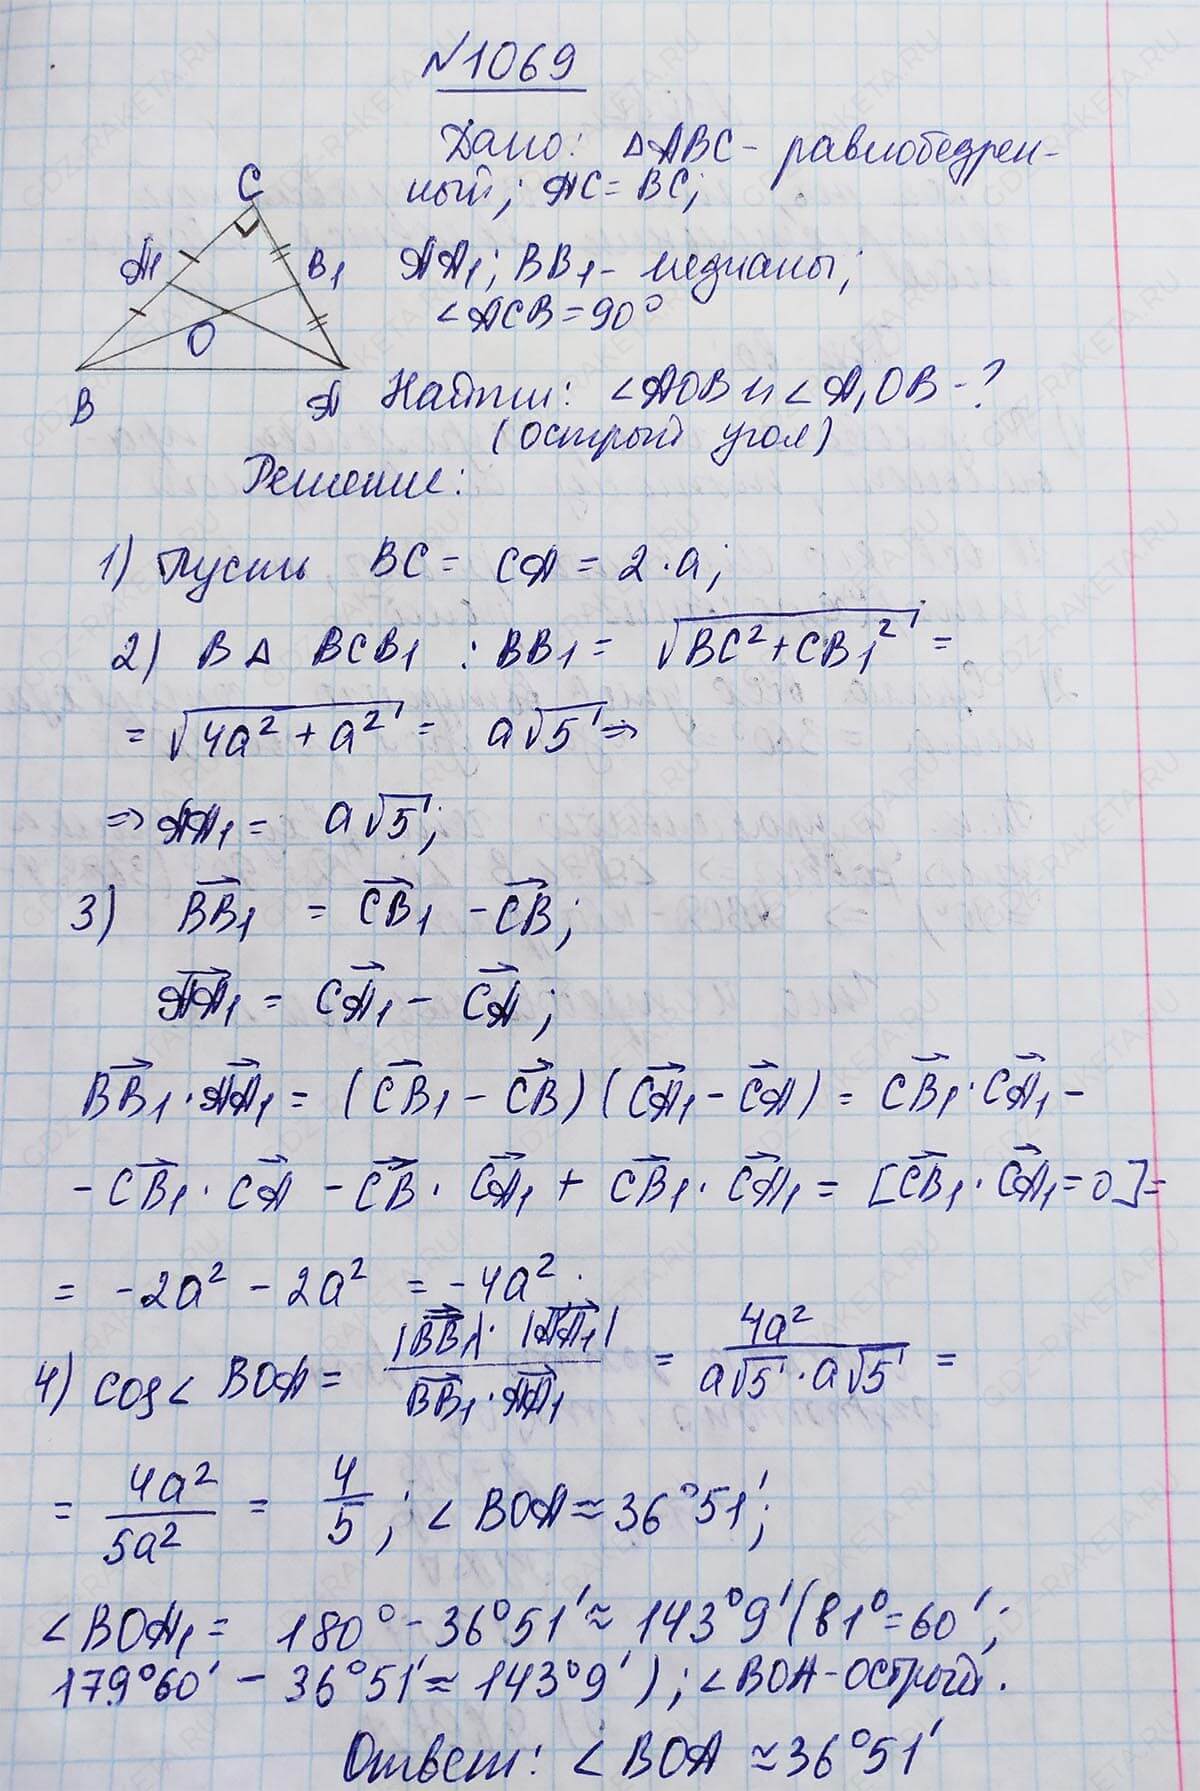 №1069
Дано: △ABC - равнобедрен-
ный; AC = BC;
AA₁; BB₁ - медианы;
∠ACB = 90°
C
A₁
B₁
O
B
A
Найти: ∠AOB и ∠A₁OB - ?
(острый угол)
Решение:
1) Пусть BC = CA = 2·a;
2) В △ BCB₁ : BB₁ = √(BC² + CB₁²) =
= √(4a² + a²) = a√5 ⇒
⇒ AA₁ = a√5;
3) →BB₁ = →CB₁ - →CB;
→AA₁ = →CA₁ - →CA;
→BB₁·→AA₁ = (→CB₁ - →CB)(→CA₁ - →CA) = →CB₁·→CA₁ -
- →CB₁·→CA - →CB·→CA₁ + →CB₁·→CA₁ = [→CB₁·→CA₁ = 0] =
= -2a² - 2a² = -4a²;
4) cos∠BOA = |→BB₁|·|→AA₁| / →BB₁·→AA₁ = 4a² / a√5·a√5 =
= 4a²/5a² = 4/5; ∠BOA ≈ 36°51';
∠BOA₁ = 180° - 36°51' ≈ 143°9' (в 1° = 60';
179°60' - 36°51' ≈ 143°9'); ∠BOA - острый.
Ответ: ∠BOA ≈ 36°51'
GDZ-RAKETA.RU